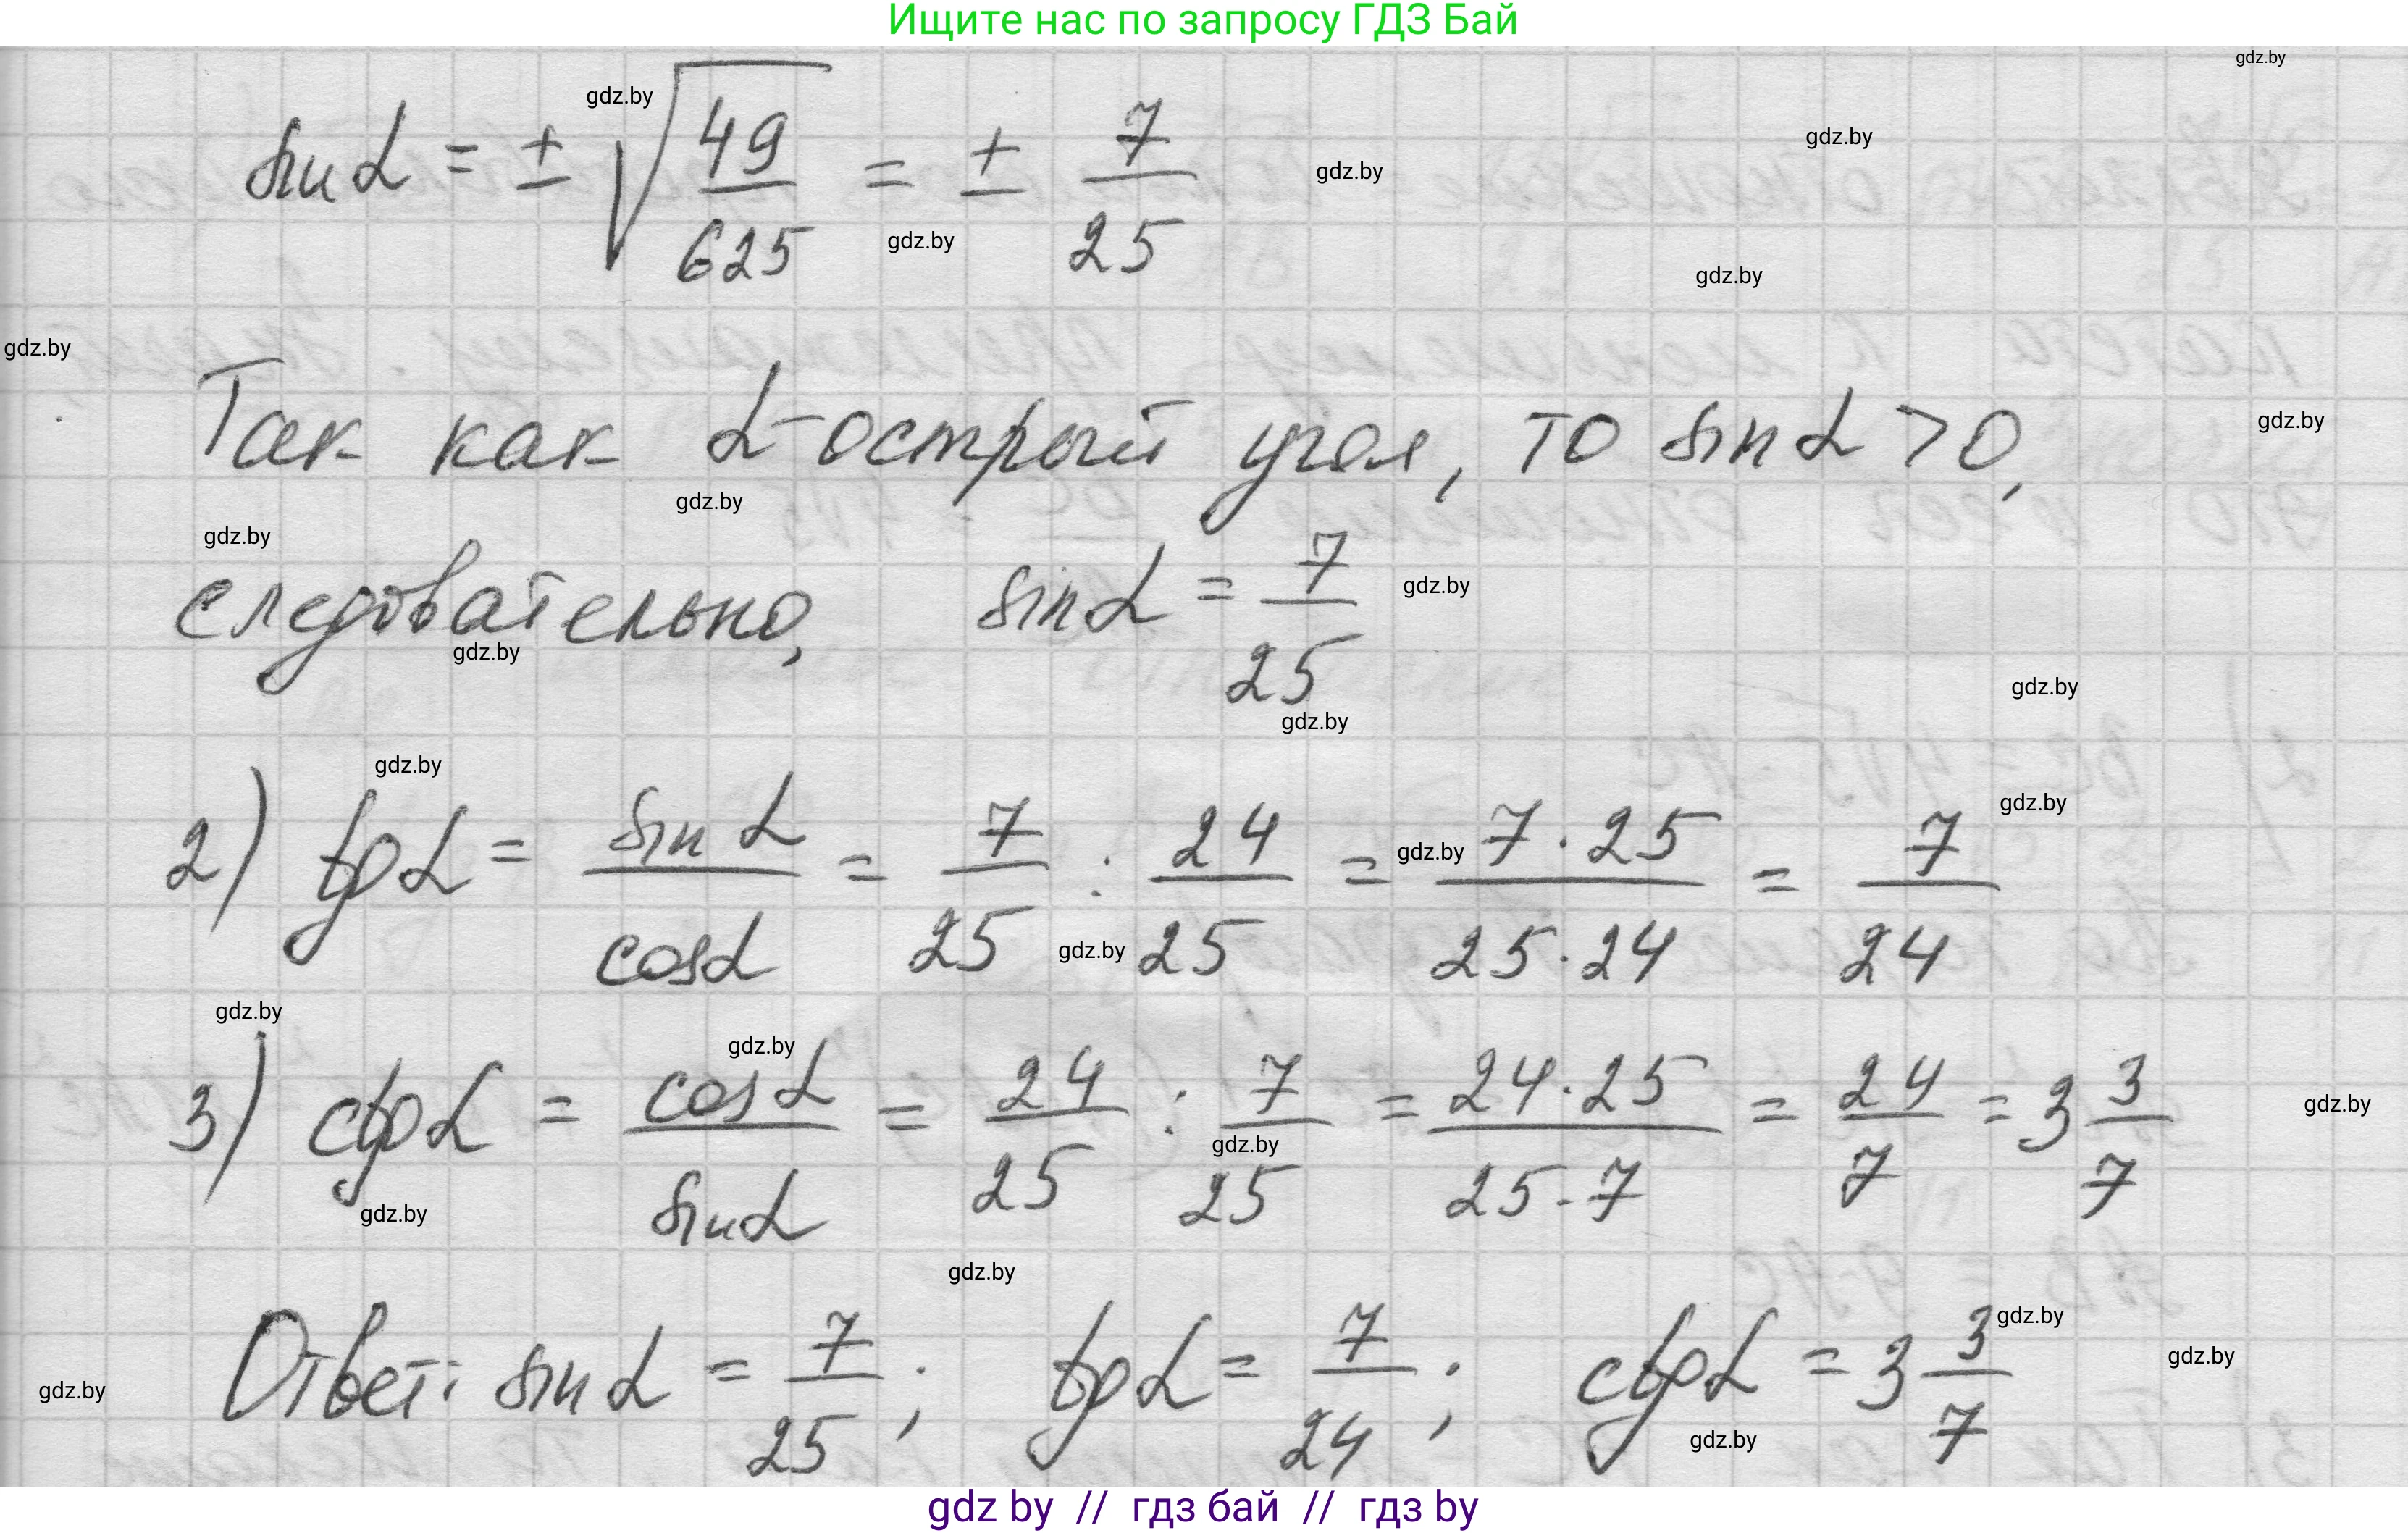 Ищите нас по запросу ГДЗ Бай
gdz.by
gdz.by
sin α = ± √(49/625) = ± 7/25
gdz.by
gdz.by
gdz.by
gdz.by
gdz.by
Так как α - острый угол, то sin α > 0,
gdz.by
gdz.by
gdz.by
следовательно, sin α = 7/25
gdz.by
gdz.by
gdz.by
gdz.by
gdz.by
gdz.by
2) tg α = sin α / cos α = 7/25 : 24/25 = 7 · 25 / 25 · 24 = 7/24
gdz.by
gdz.by
gdz.by
gdz.by
3) ctg α = cos α / sin α = 24/25 : 7/25 = 24 · 25 / 25 · 7 = 24/7 = 3 3/7
gdz.by
gdz.by
gdz.by
gdz.by
gdz.by
Ответ: sin α = 7/25 ; tg α = 7/24 ; ctg α = 3 3/7
gdz.by
gdz.by
gdz.by
gdz by // гдз бай // гдз by